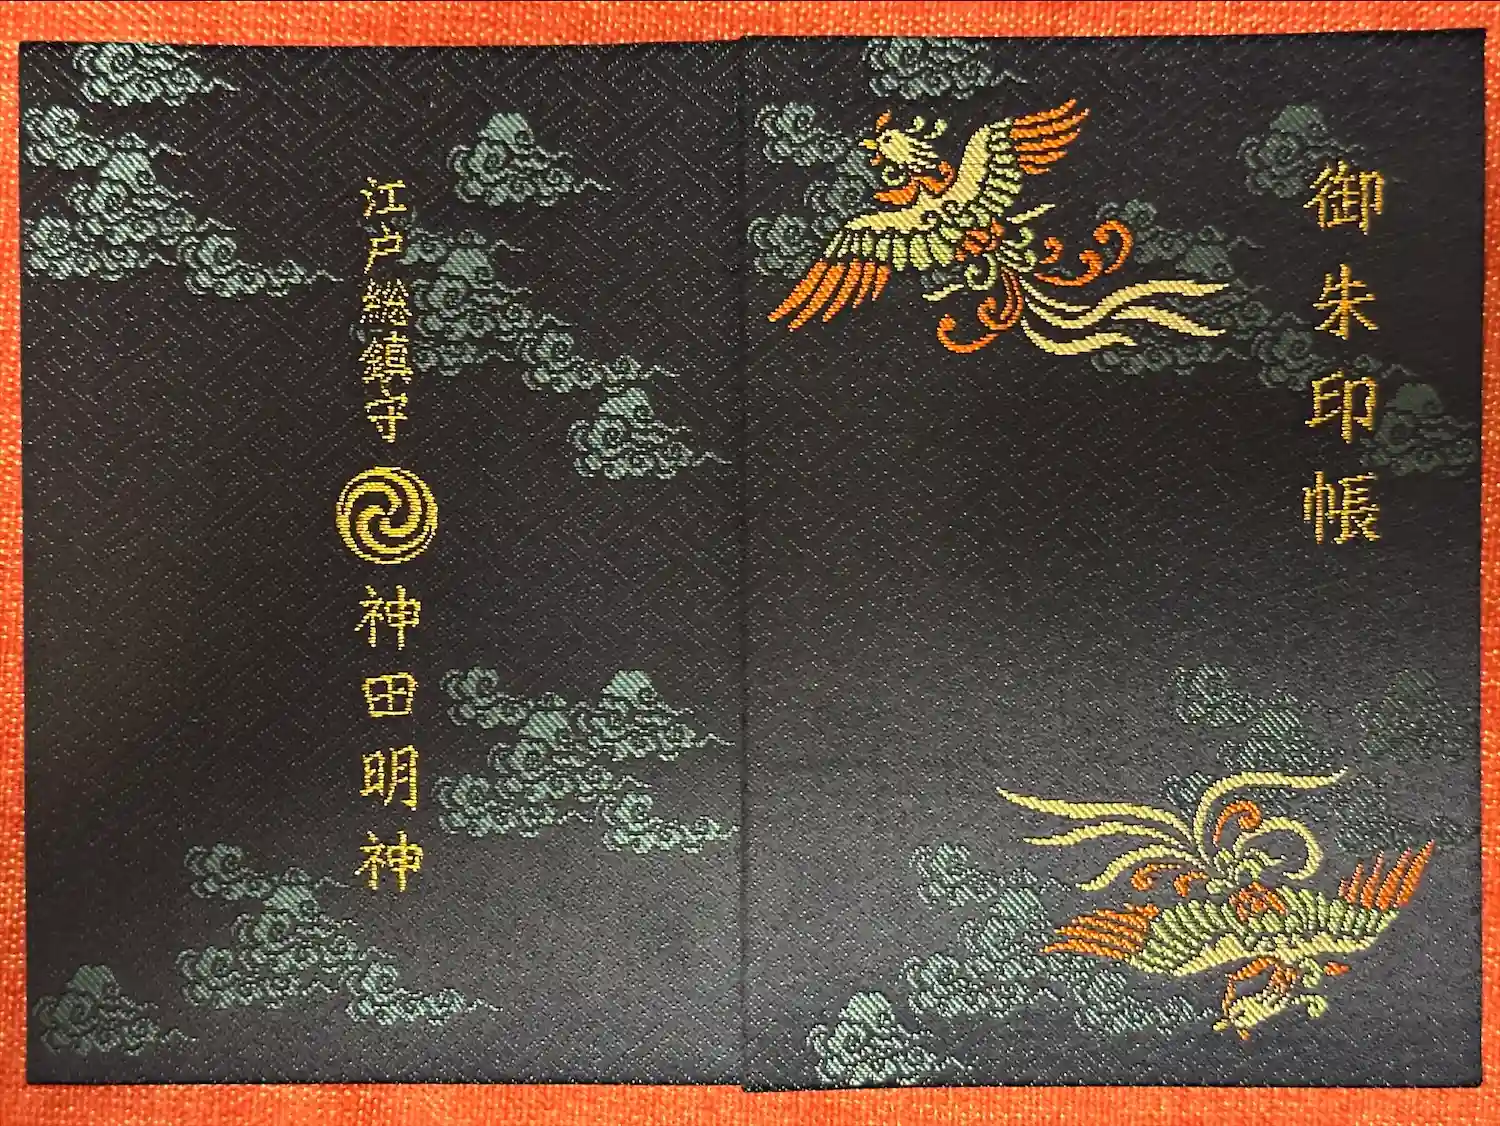 御朱印帳
江戸総鎮守
神田明神